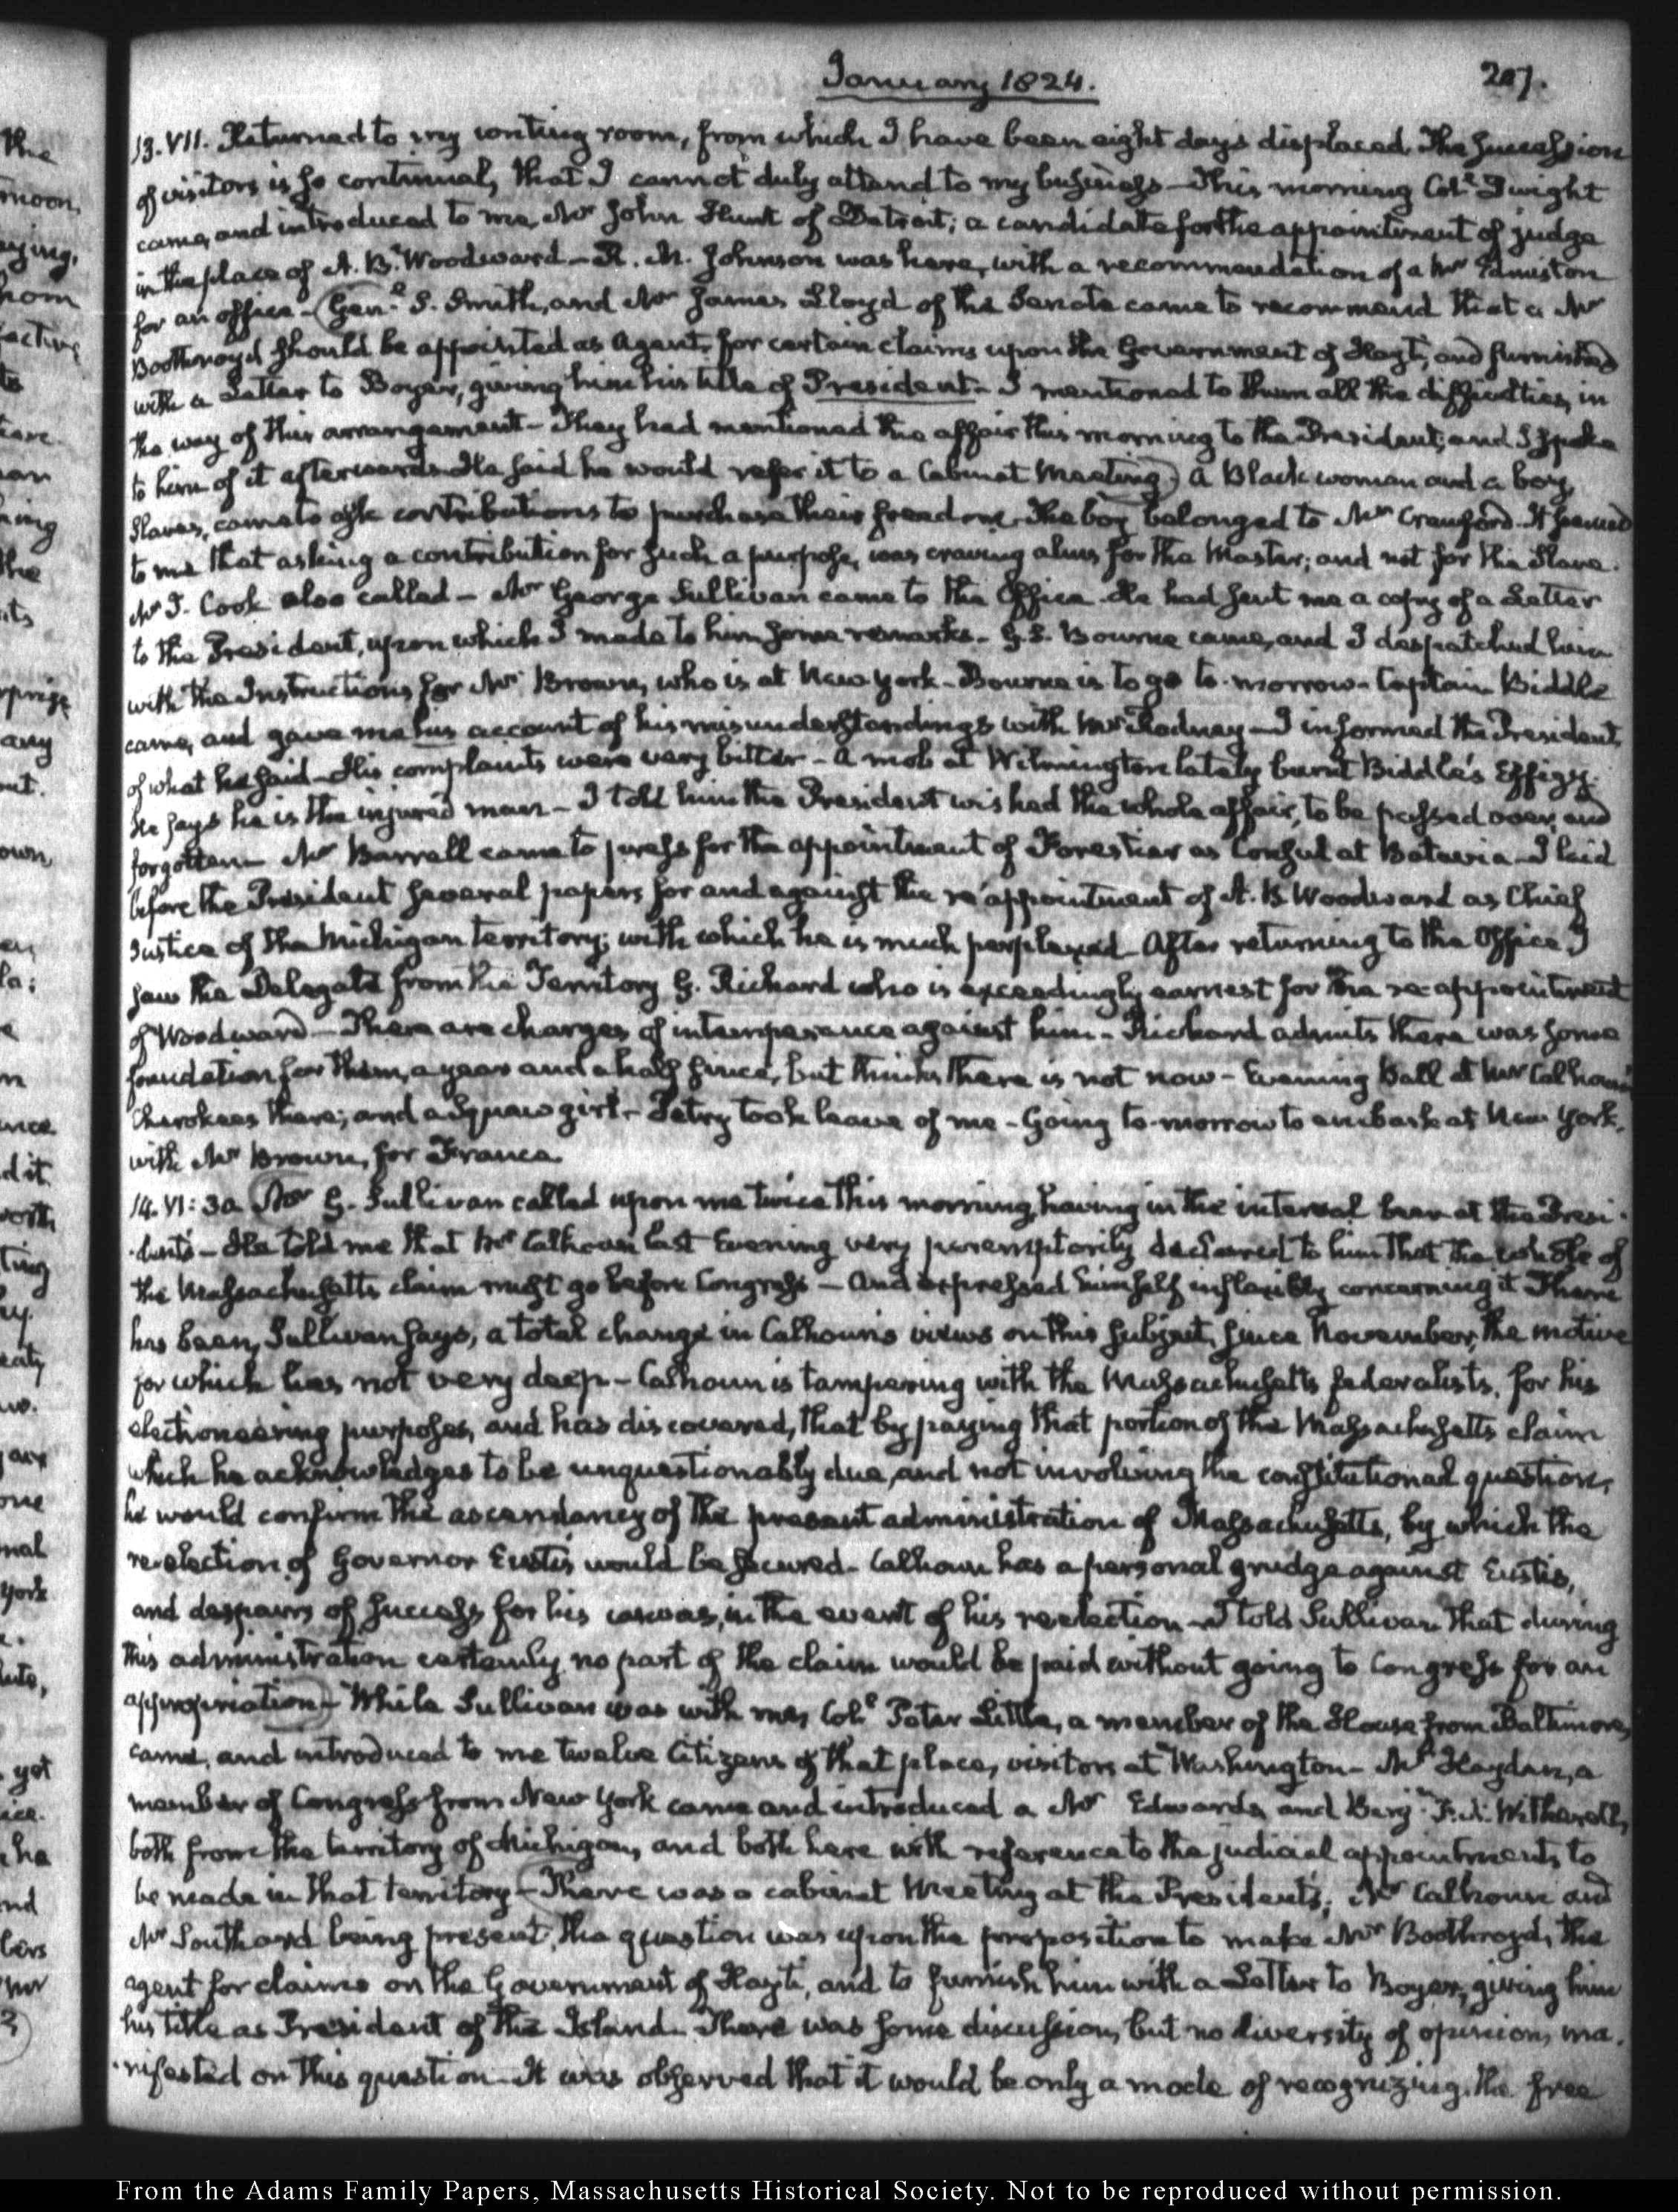 January 1824.
207.
13. VII. Returned to my writing room, from which I have been eight days displaced. The succession
of visitors is so continual, that I cannot duly attend to my business — This morning Coll. Dwight
came, and introduced to me, Mr John Hunt of Detroit; a candidate for the appointment of judge
in the place of A. B. Woodward — R. M. Johnson was here, with a recommendation of a Mr Edmiston
for an office — Genl. S. Smith, and Mr James Lloyd of the Senate came to recommend that a Mr
Boothroyd should be appointed as Agent, for certain claims upon the Government of Hayti, and furnished
with a Letter to Boyer, giving him his title of President — I mentioned to them all the difficulties, in
the way of this arrangement — They had mentioned the affair this morning to the President, and I spoke
to him of it afterwards. He said he would refer it to a Cabinet Meeting. A Black woman and a boy,
Slaves, came to ask contributions to purchase their freedom. The boy belonged to Mr Crawford. It seemed
to me that asking a contribution for such a purpose, was craving alms for the Master; and not for the Slave.
Mr J. Cook also called — Mr George Sullivan came to the Office. He had sent me a copy of a Letter
to the President, upon which I made to him some remarks — Bourne came, and I despatched him
with the Instructions for Mr Brown, who is at New York — Bourne is to go to-morrow — Captain Biddle
came, and gave me his account of his misunderstandings with Mr Rodney — I informed the President
of what he said — His complaints were very bitter — A mob at Wilmington lately burnt Biddle's Effigy.
He says he is the injured man — I told him the President wished the whole affair, to be passed over, and
forgotten — Mr Barrell came to press for the appointment of Forestier as Consul at Batavia — I laid
before the President several papers for and against the re-appointment of A. B. Woodward as Chief
Justice of the Michigan territory; with which he is much perplexed — After returning to the Office I
saw the Delegate from the Territory G. Richard who is exceedingly earnest for the re-appointment
of Woodward — There are charges of intemperance against him — Richard admits there was some
foundation for them, a year and a half since, but thinks there is not now — Evening Ball at Mr Calhoun's
Cherokees there; and a Squaw girl — Petry took leave of me — Going to-morrow to embark at New York,
with Mr Brown, for France.
14. VI: 30. Mr G. Sullivan called upon me twice this morning, having in the interval been at the Presi-
-dent's — He told me that Mr Calhoun last Evening very peremptorily declared to him that the whole of
the Massachusetts claim must go before Congress — And expressed himself inflexibly concerning it. There
has been, Sullivan says, a total change in Calhoun's views on this subject, since November, the motive
for which lies not very deep — Calhoun is tampering with the Massachusetts federalists, for his
electioneering purposes, and has discovered, that by paying that portion of the Massachusetts claim
which he acknowledges to be unquestionably due, and not involving the constitutional question,
he would confirm the ascendancy of the present administration of Massachusetts, by which the
re-election of Governor Eustis would be secured — Calhoun has a personal grudge against Eustis,
and despairs of success for his canvas, in the event of his reelection — I told Sullivan that during
this administration certainly no part of the claim would be paid without going to Congress for an
appropriation — While Sullivan was with me, Coll. Peter Little, a member of the House from Baltimore,
came, and introduced to me twelve Citizens of that place, visitors at Washington — Mr Hayden, a
member of Congress from New York came and introduced a Mr Edwards and Benj. F. H. Witherell,
both from the territory of Michigan, and both here with reference to the judicial appointments to
be made in that territory — There was a cabinet Meeting at the President's; Mr Calhoun and
Mr Southard being present, the question was upon the proposition to make Mr Boothroyd, the
agent for claims on the Government of Hayti, and to furnish him with a Letter to Boyer, giving him
his title as President of the Island. There was some discussion, but no diversity of opinion, ma-
-nifested on this question — It was observed that it would be only a mode of recognizing the free
From the Adams Family Papers, Massachusetts Historical Society. Not to be reproduced without permission.